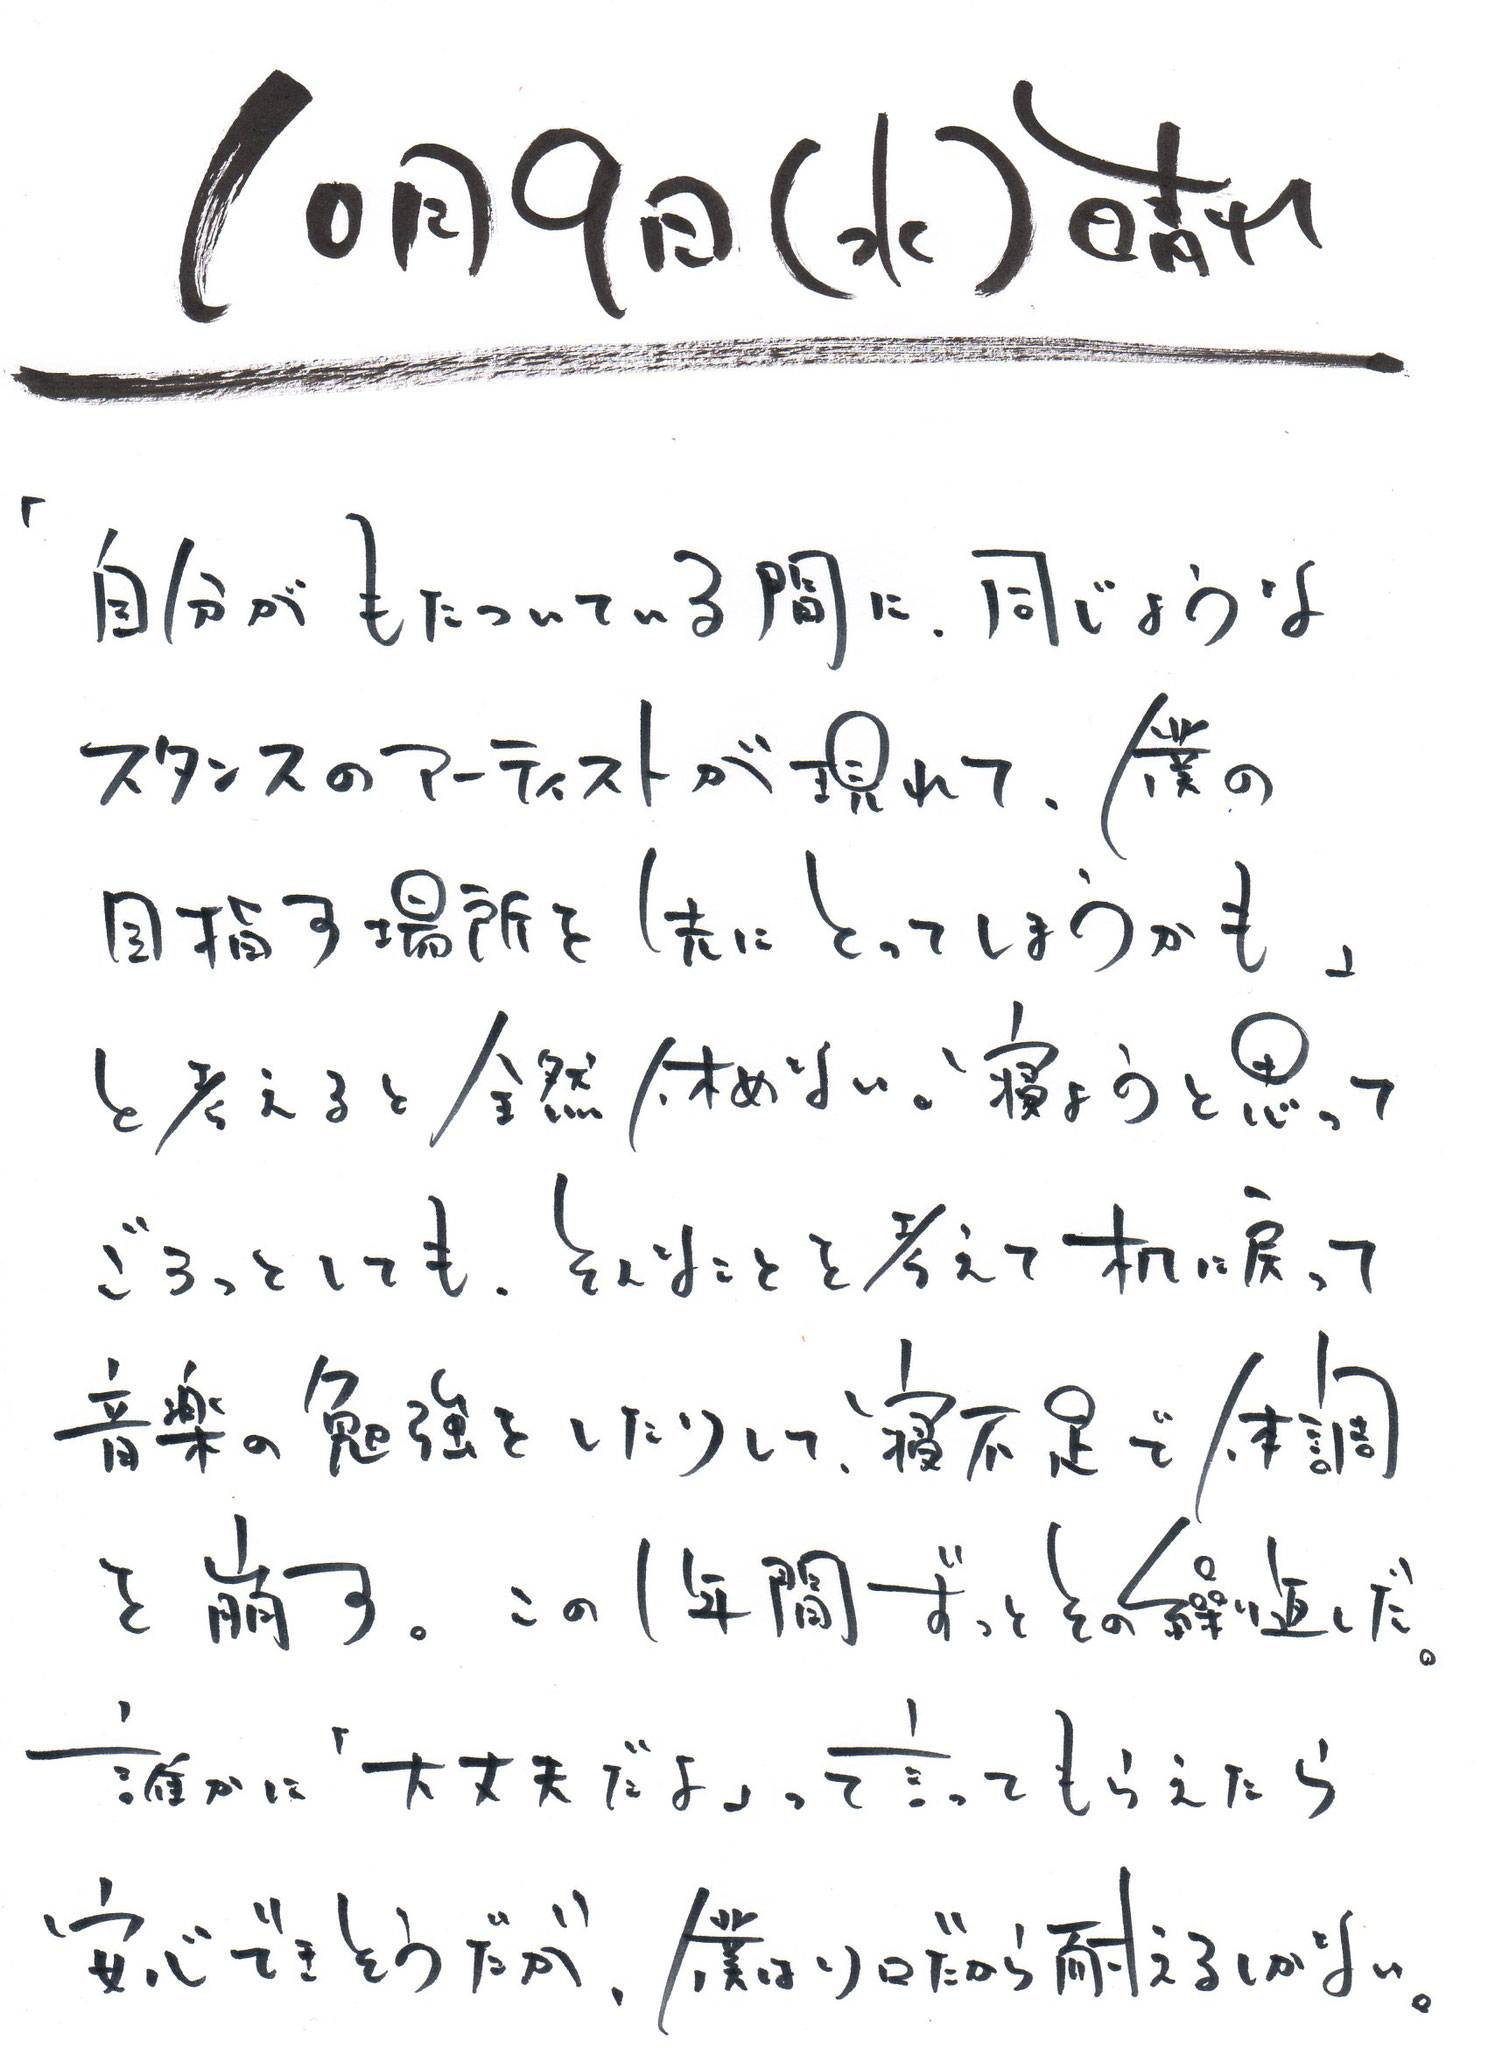 10月9日(水)晴れ
「自分がもたついている間に、同じような
スタンスのアーティストが現れて、僕の
目指す場所を先にとってしまうかも」
と考えると全然休めない。寝ようと思って
ごろっとしても、そんなことを考えて机に戻って
音楽の勉強をしたりして、寝不足で体調
を崩す。この1年間ずっとその繰り返しだ。
誰かに「大丈夫だよ」って言ってもらえたら
安心できそうだが、僕はソロだから耐えるしかない。